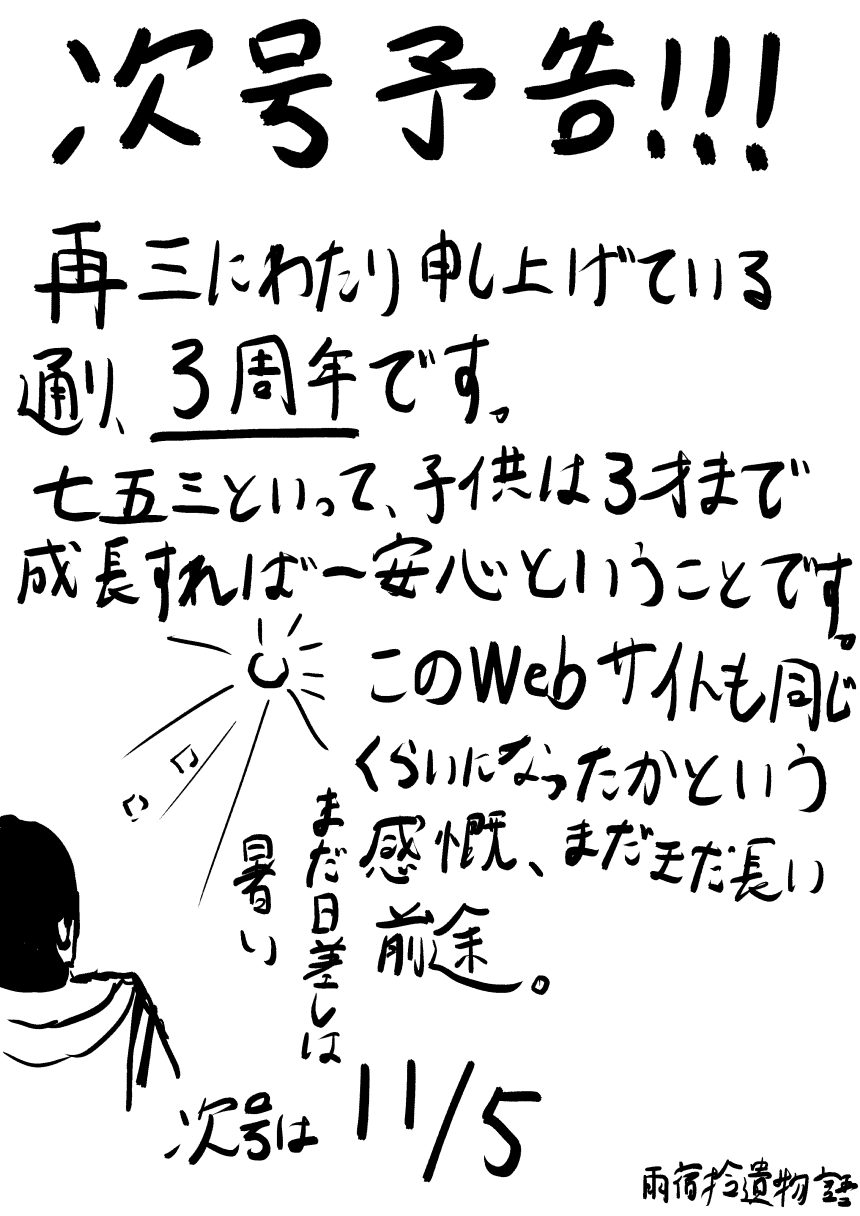 次号予告!!!
再三にわたり申し上げている
通り、3周年です。
七五三といって、子供は3才まで
成長すれば一安心ということです。
このWebサイトも同じ
くらいになったかという
感慨、まだまだ長い
前途。
まだ日差しは
暑い
次号は 11/5
雨宿拾遺物語